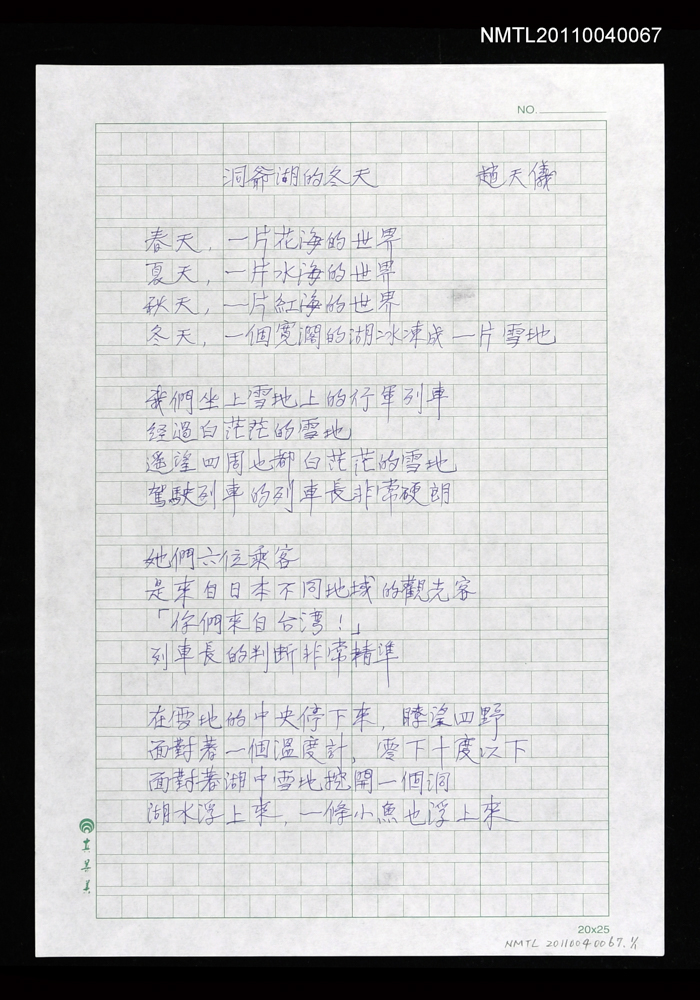 NMTL20110040067
NO.
洞爺湖的冬天 趙天儀
春天，一片花海的世界
夏天，一片水海的世界
秋天，一片紅海的世界
冬天，一個寬濶的湖冰凍成一片雪地
我們坐上雪地上的行軍列車
經過白茫茫的雪地
遙望四周也都白茫茫的雪地
駕駛列車的列車長非常硬朗
她們六位乘客
是來自日本不同地域的觀光客
「你們來自台湾！」
列車長的判断非常精準
在雪地的中央停下來，瞭望四野
面對著一個溫度計，零下十度以下
面對著湖中雪地挖開一個洞
湖水浮上來，一條小魚也浮上來
20x25
NMTL 20110040067. 1/1